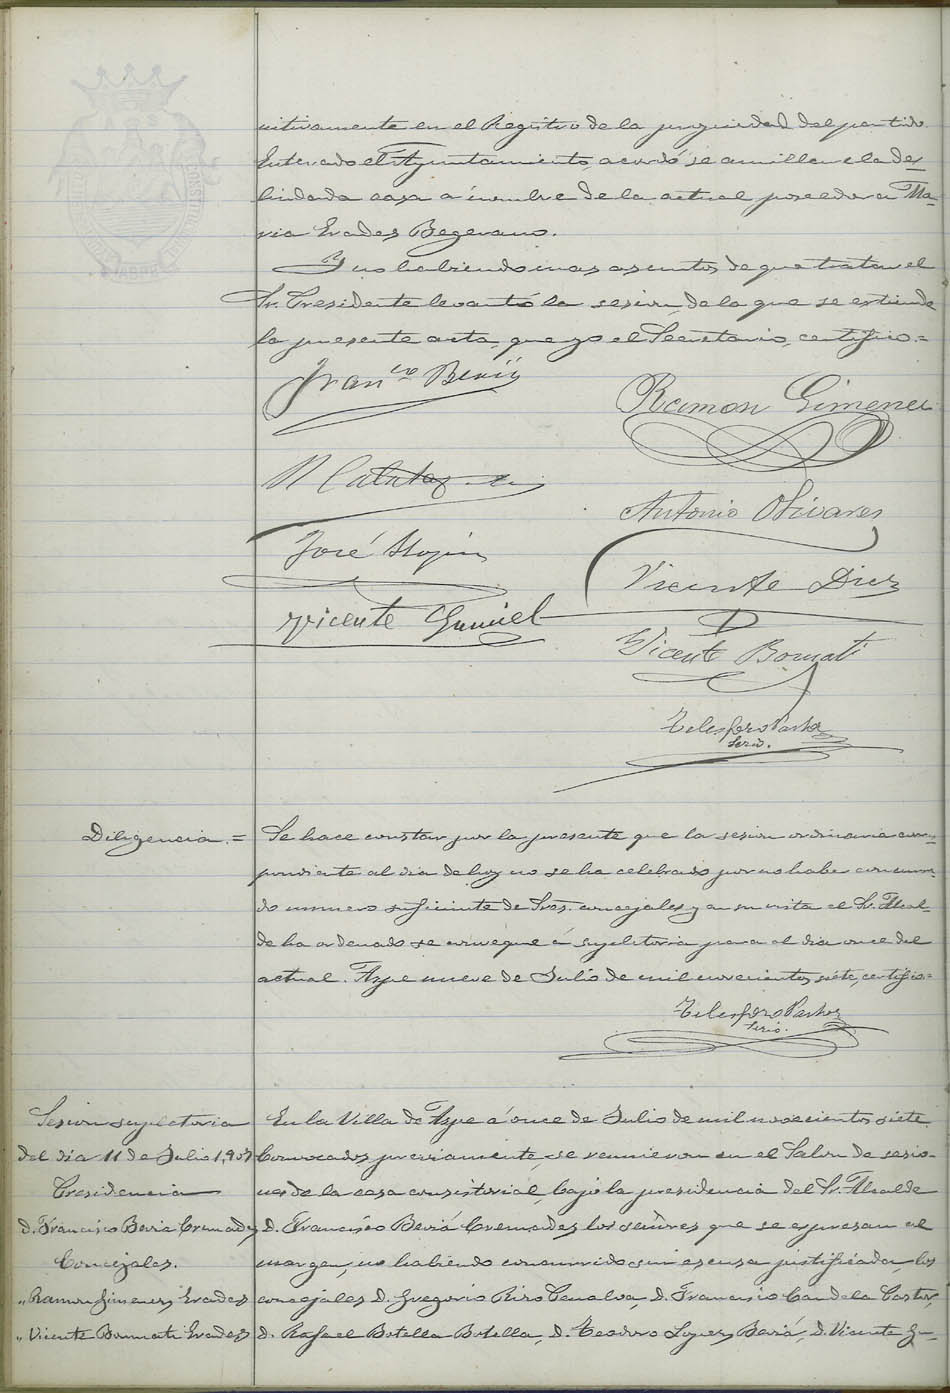 nitivamente en el Registro de la propiedad del partido.
Enterado el Ayuntamiento, acordó se amillare la des
lindada casa a nombre de la actual poseedora Ma-
ria Erades Begerano.
Y no habiendo mas asuntos de que tratar el
Sr. Presidente levantó la sesion, de la que se extiende
la presente acta, que yo el Secretario, certifico.=
Franco Beriá
Ramon Gimenez
Antonio Olivares
José
Vicente Diez
Vicente Gumiel
Vicente Bonmati
Telesforo Pastor
Serio.
Diligencia.=
Se hace constar por la presente que la sesion ordinaria corres-
pondiente al dia de hoy no se ha celebrado por no haber concurri-
do numero suficiente de Sres. concejales y en su vista el Sr. Alcal-
de ha ordenado se convoque á supletoria para el dia once del
actual. Aspe nueve de Julio de mil novecientos siete, certifico=
Telesforo Pastor
Serio.
Sesion supletoria
del dia 11 de Julio 1,907
Presidencia
D. Francisco Beria Cremades
Concejales.
" Ramon Gimenez Erades
" Vicente Bonmati Erades
En la Villa de Aspe á once de Julio de mil novecientos siete.
Convocados previamente, se reunieron en el Salon de sesio-
nes de la casa consistorial, bajo la presidencia del Sr. Alcalde
D. Francisco Beriá Cremades los señores que se expresan al
margen, no habiendo concurrido sin escusa justificada los
concejales D. Gregorio Rizo Penalva, D. Francisco Candela Pastor,
D. Rafael Botella Botella, D. Teodoro Lopez Beriá, D. Vicente Gu-